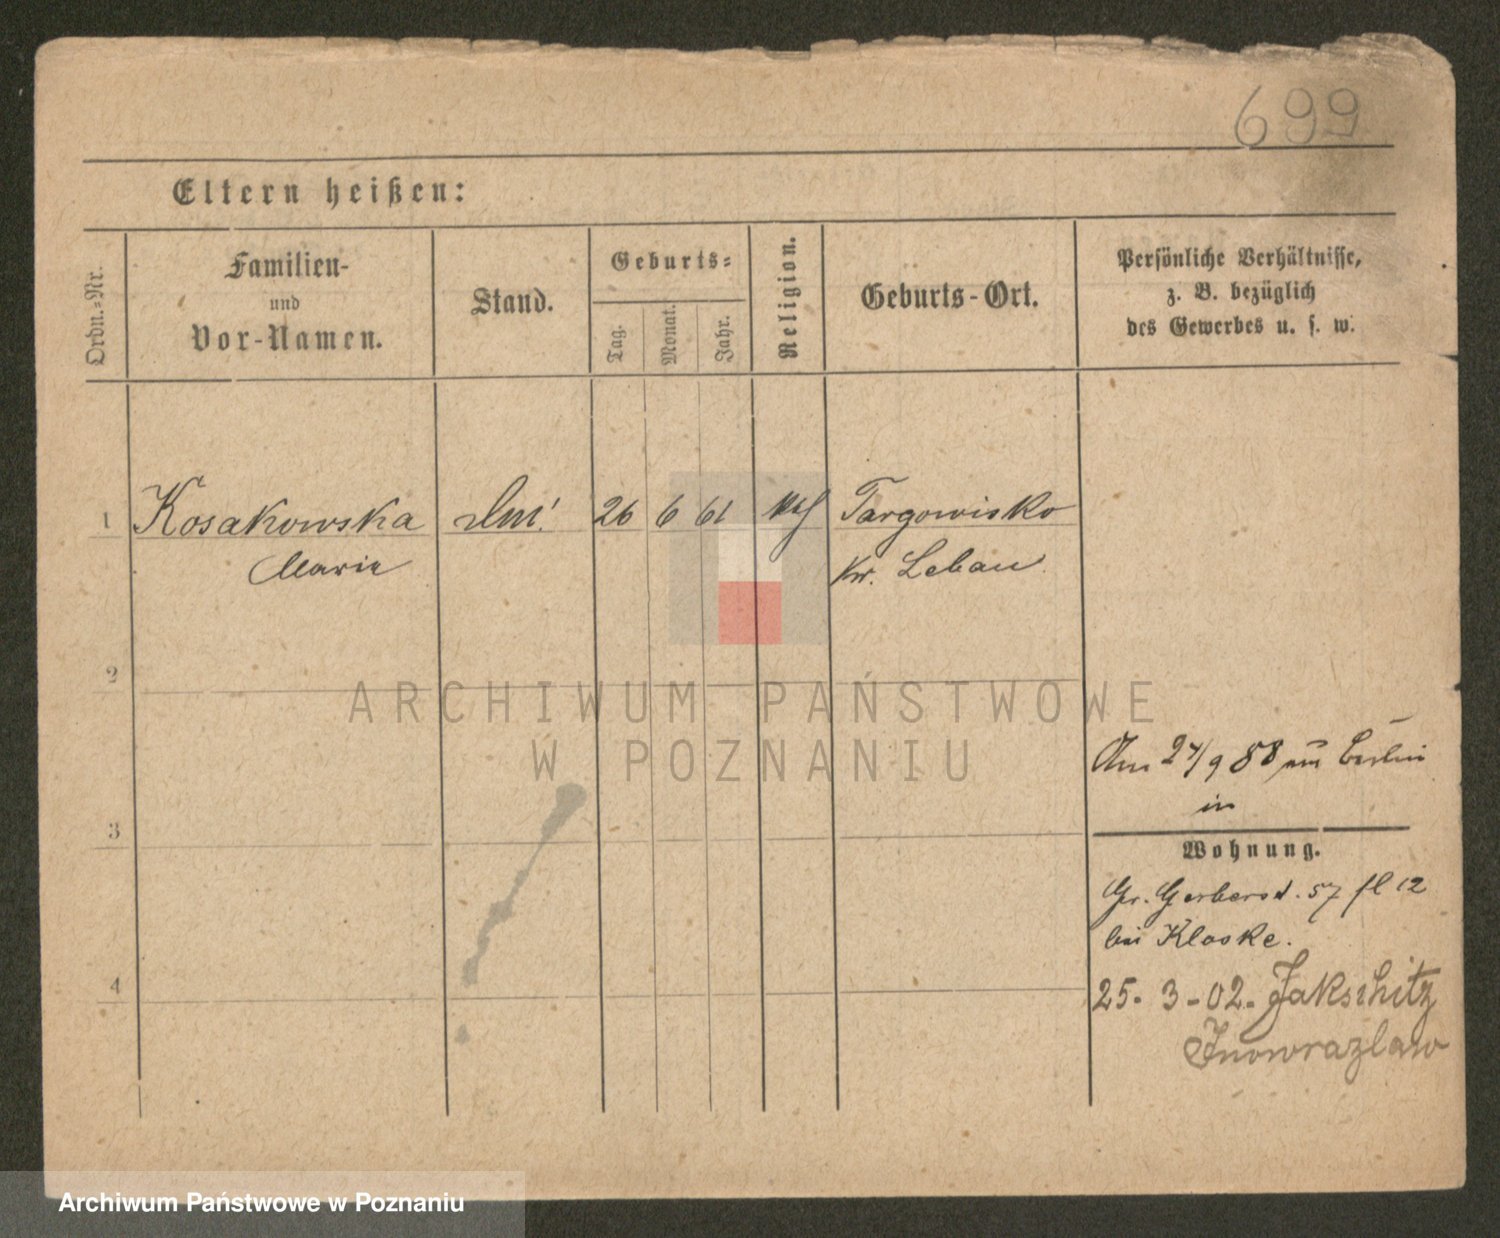 699
Eltern heißen:
Ordn.-Nr.
Familien-
und
Vor-Namen.
Stand.
Geburts-
Tag.
Monat.
Jahr.
Religion.
Geburts-Ort.
Persönliche Verhältnisse,
z. B. bezüglich
des Gewerbes u. s. w.
1 Kosakowska 26 6 61 kath Targowisko
Marie Kr. Lebau
2
ARCHIWUM PAŃSTWOWE
W POZNANIU
Am 24/9 88 Berlin
in
3
Wohnung.
Gr. Gerberst. 57 fl 12
bei Kloske.
4
25. 3-02. Jakschitz
Inowrazlaw
Archiwum Państwowe w Poznaniu